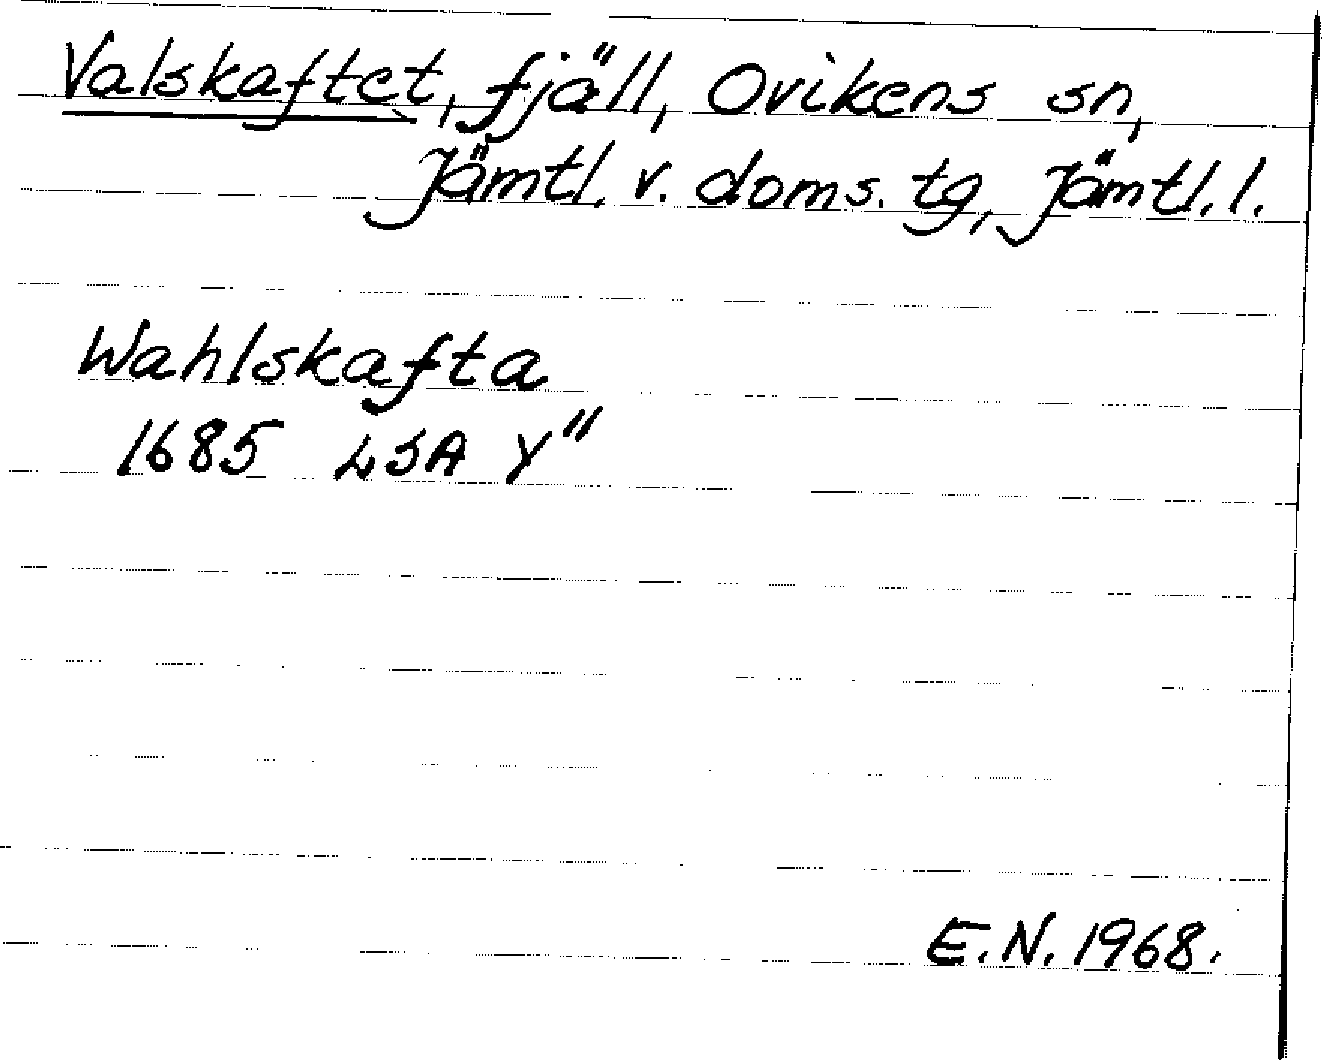 Valskaftet, fjäll, Ovikens sn,
Jämtl. v. doms. tg, Jämtl. l.
Wahlskafta
1685 LSA Y"
E.N. 1968.